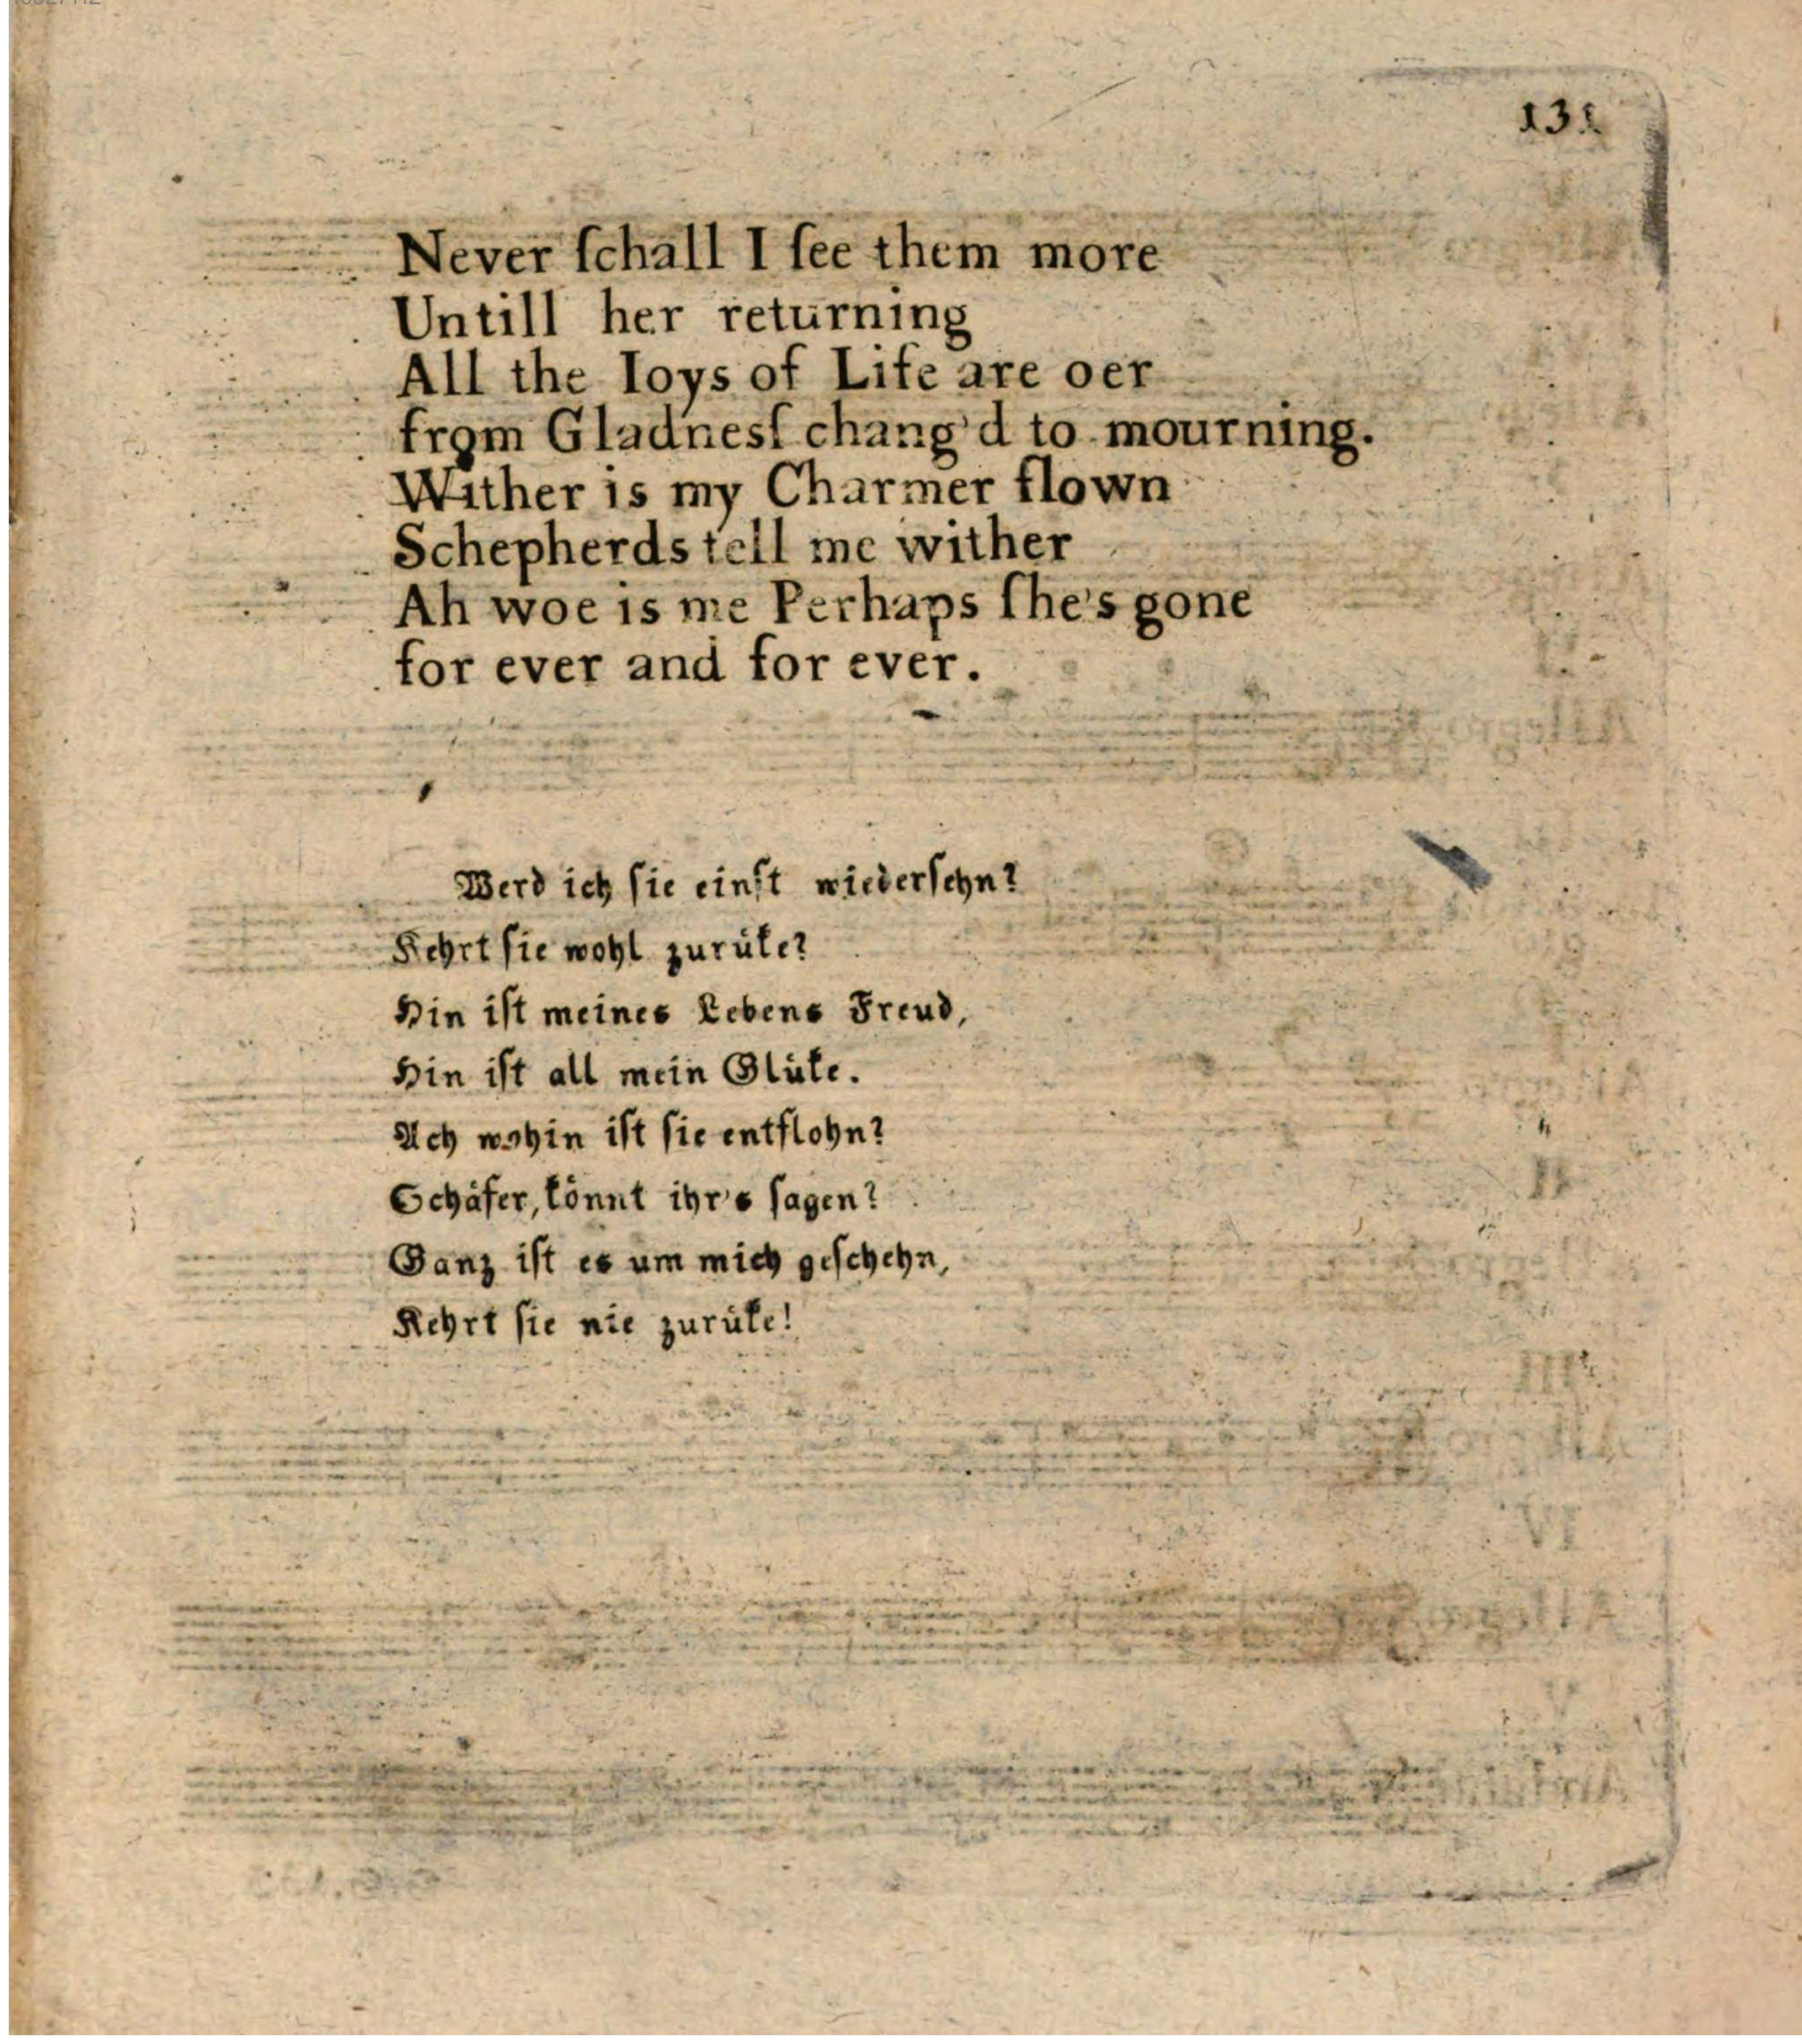 131
Never ſchall I ſee them more
Untill her returning
All the Ioys of Life are oer
from Gladneſſ chang'd to mourning.
Wither is my Charmer flown
Schepherds tell me wither
Ah woe is me Perhaps ſhe's gone
for ever and for ever.
Werd ich ſie einſt wiederſehn?
Kehrt ſie wohl zurüke?
Hin iſt meines Lebens Freud,
Hin iſt all mein Glüke.
Ach wohin iſt ſie entflohn?
Schäfer, könnt ihr's ſagen?
Ganz iſt es um mich geſchehn,
Kehrt ſie nie zurüke!